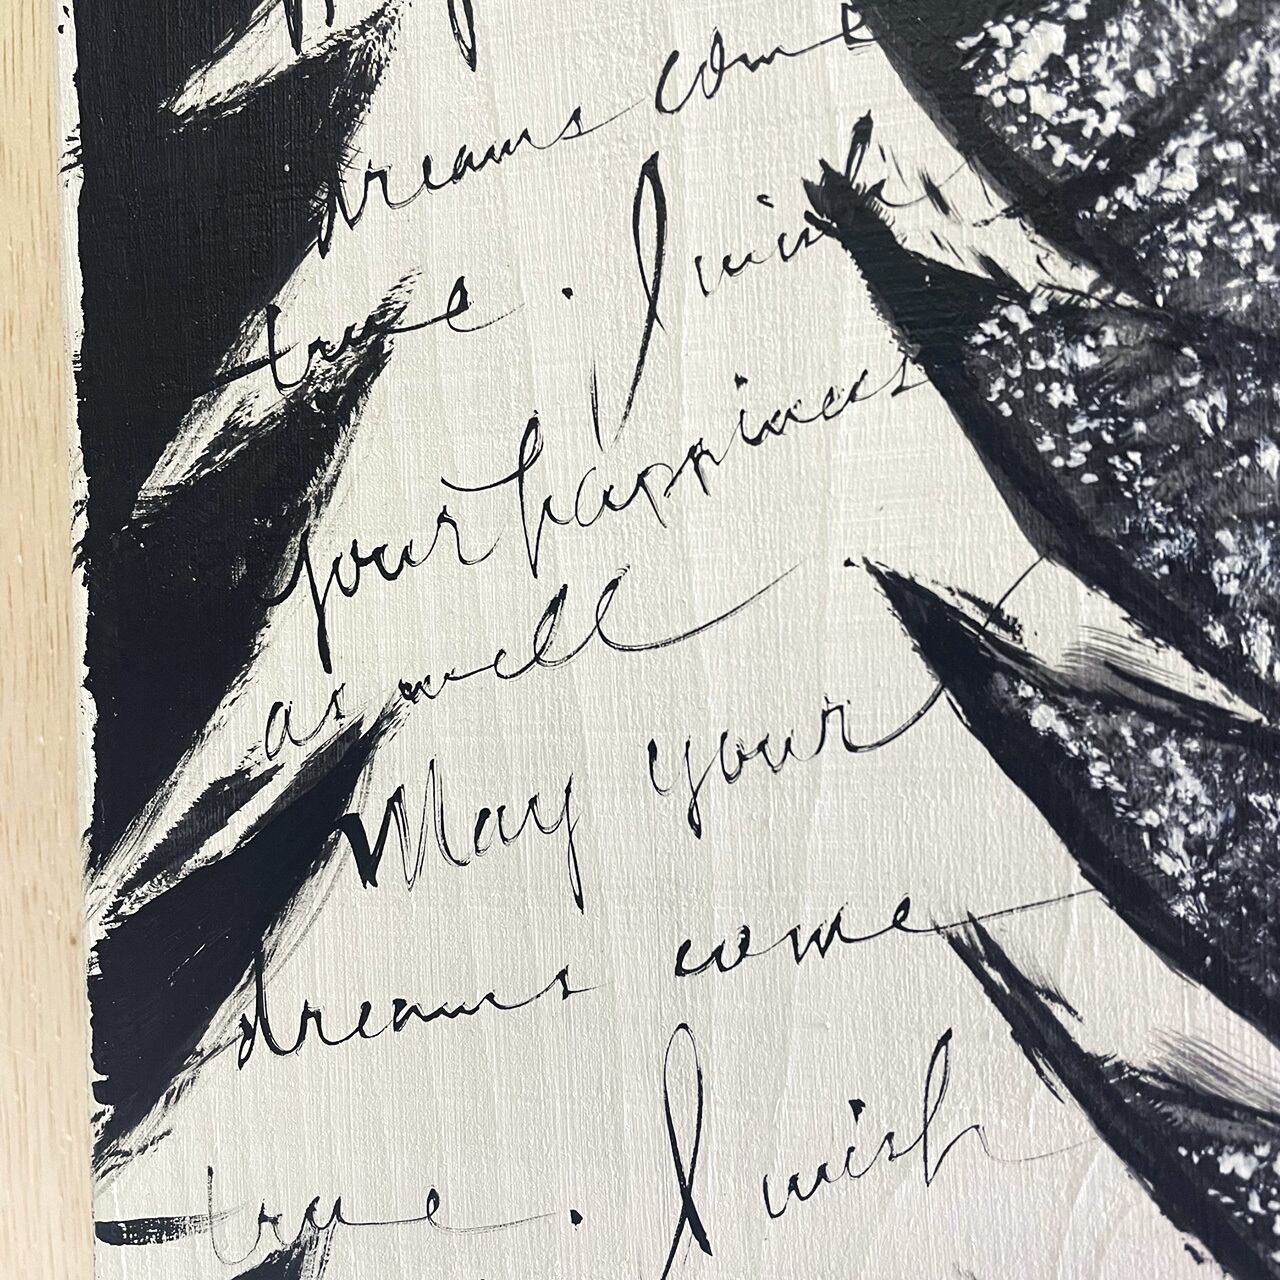 dreams come
true. I wish
your happiness
as well.
May your
dreams come
true. I wish